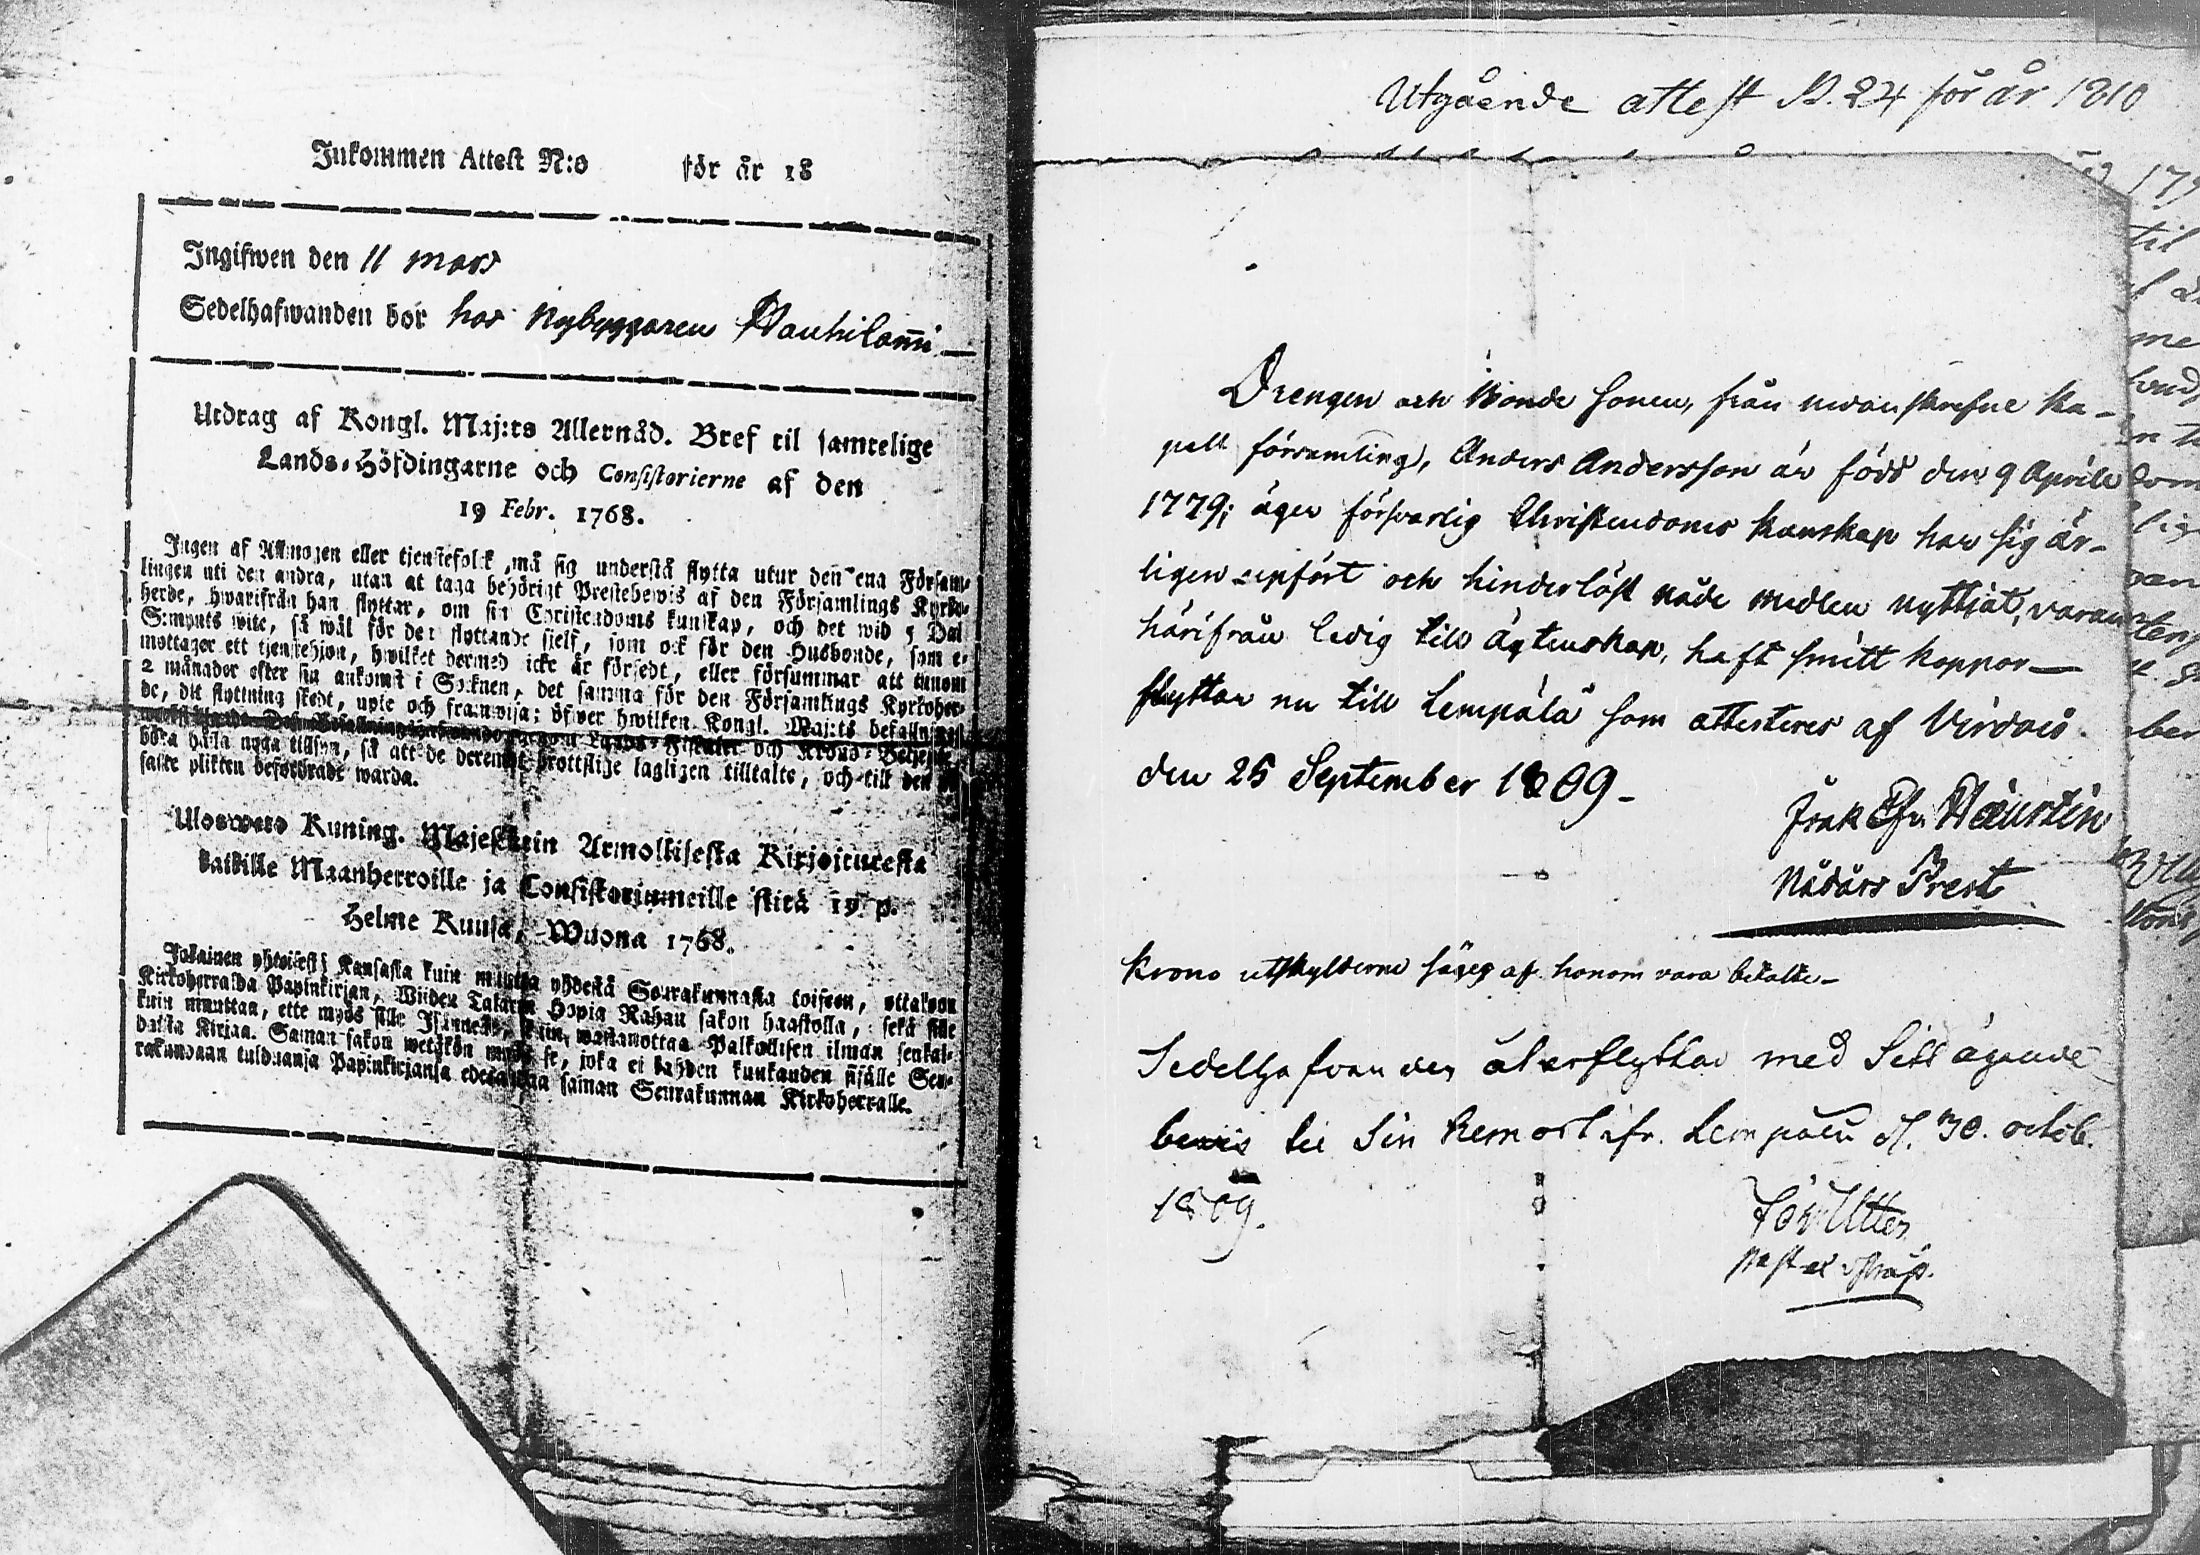 Inkommen Attest N:o för år 18
Ingifwen den 11 mars
Sedelhafwanden bor hos Nybyggaren Hauhilam̄i
Utdrag af Kongl. Maj:ts Allernåd. Bref til samtelige
Lands-Höfdingarne och Consistorierne af den
19 Febr. 1768.
Ingen af Allmogen eller tjenstefolck må sig understå flytta utur den ena Försam-
lingen uti den andra, utan at taga behörigt Prestebewis af den Församlings Kyrko-
herde, hwarifrån han flyttar, om sin Christendoms kunskap, och det wid 5 Dal.
S:mynts wite, så wäl för den flyttande sjelf, som ock för den Husbonde, som e-
mottager ett tjenstehjon, hwilket dermed icke är försedt, eller försummar att innom
2 månader efter sin ankomst i Socknen, det samma för den Församlings Kyrkoher-
de, dit flyttning skedt, upte och framwisa; öfwer hwilken Kongl. Maj:ts befallning
Lands-Fiskaler och Krono-Betjente
böra hålla noga tillsyn, så att de deremot brottslige lagligen tilltalte, och till den
plikten befordrade warda.
Ulosweto Kuning. Majestetin Armollisesta Kirjoituxesta
kaikille Maanherroille ja Consistoriumeille siitä 19 p.
Helme Kuusa, Wuona 1768.
Jokainen yhteisestä Kansasta kuin muuttaa yhdestä Seurakunnasta toiseen, ottakoon
Kirkoherralda Papinkirjan, Wiiden Talarin Hopia Rahan sakon haastolla, sekä sille
kuin muuttaa, ette myös sille Isännelle, kuin wastanottaa Palkollisen ilman senkal-
daista Kirjaa. Saman sakon wetäkön myös se, joka ei kahden kuukauden sisälle Seu-
rakundaan tulduansa Papinkirjansa edesanna saman Seurakunnan Kirkoherralle.
Utgående attest N. 24 för år 1810
Drengen och Bonde sonen, från nedanskrefne Ka-
pell församling, Anders Andersson är född den 9 Aprill
1779; äger försvarlig Christendoms kunskap har sig är-
ligen upfört och hinderlöst nåde medlen nyttjat, varan
härifrån ledig till ägtenskap, haft smitt koppor—
flyttar nu till Lempälä som attesteres af Virdois.
den 25 September 1809–
Nådårs Prest
Krono utskylderne säges af honom vara betalte–
Sedelhafvanden återflyttar med Sitt ägande
bewis til Sin hemort ifr. Lempälä d. 30. octob.
1809.